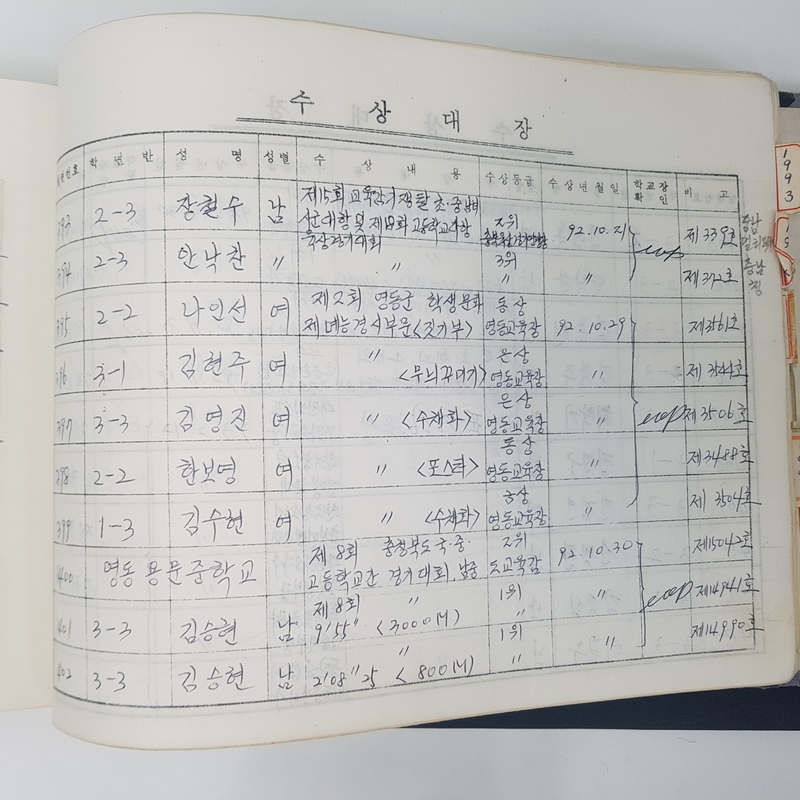 수 상 대 장
학 년 반 성 명 성별 수 상 내 용 수상등급 수 상 년 월 일 학교장 확인 비 고
393 2-3 장철수 남 제15회 교육감기 쟁탈 초·중 2위 92.10.21 제339호
육상경기대회
394 2-3 안낙찬 〃 〃 3위 〃 제372호
395 2-2 나인선 여 제2회 영동군 학생문화 동상
제 예능경시부문<짓기부> 영동교육장 92.10.29 제3561호
396 3-1 김현주 여 〃 은상
<무늬꾸미기> 영동교육장 〃 제3544호
397 3-3 김영진 여 〃 <수채화> 은상
영동교육장 〃 제3506호
398 2-2 한보영 여 〃 <포스타> 동상
영동교육장 〃 제3488호
399 1-3 김수현 여 〃 <수채화> 영동교육장 〃 제3504호
400 영동 용문중학교 제8회 충청북도 국·중· 2위 92.10.30 제15042호
고등학교간 경기대회. 남중 도교육감
401 3-3 김승현 남 제8회 〃 1위 〃 제14941호
9'55" <3000M> 〃
402 3-3 김승현 남 〃 1위 〃 제14990호
2'08"25 <800M> 〃
1993